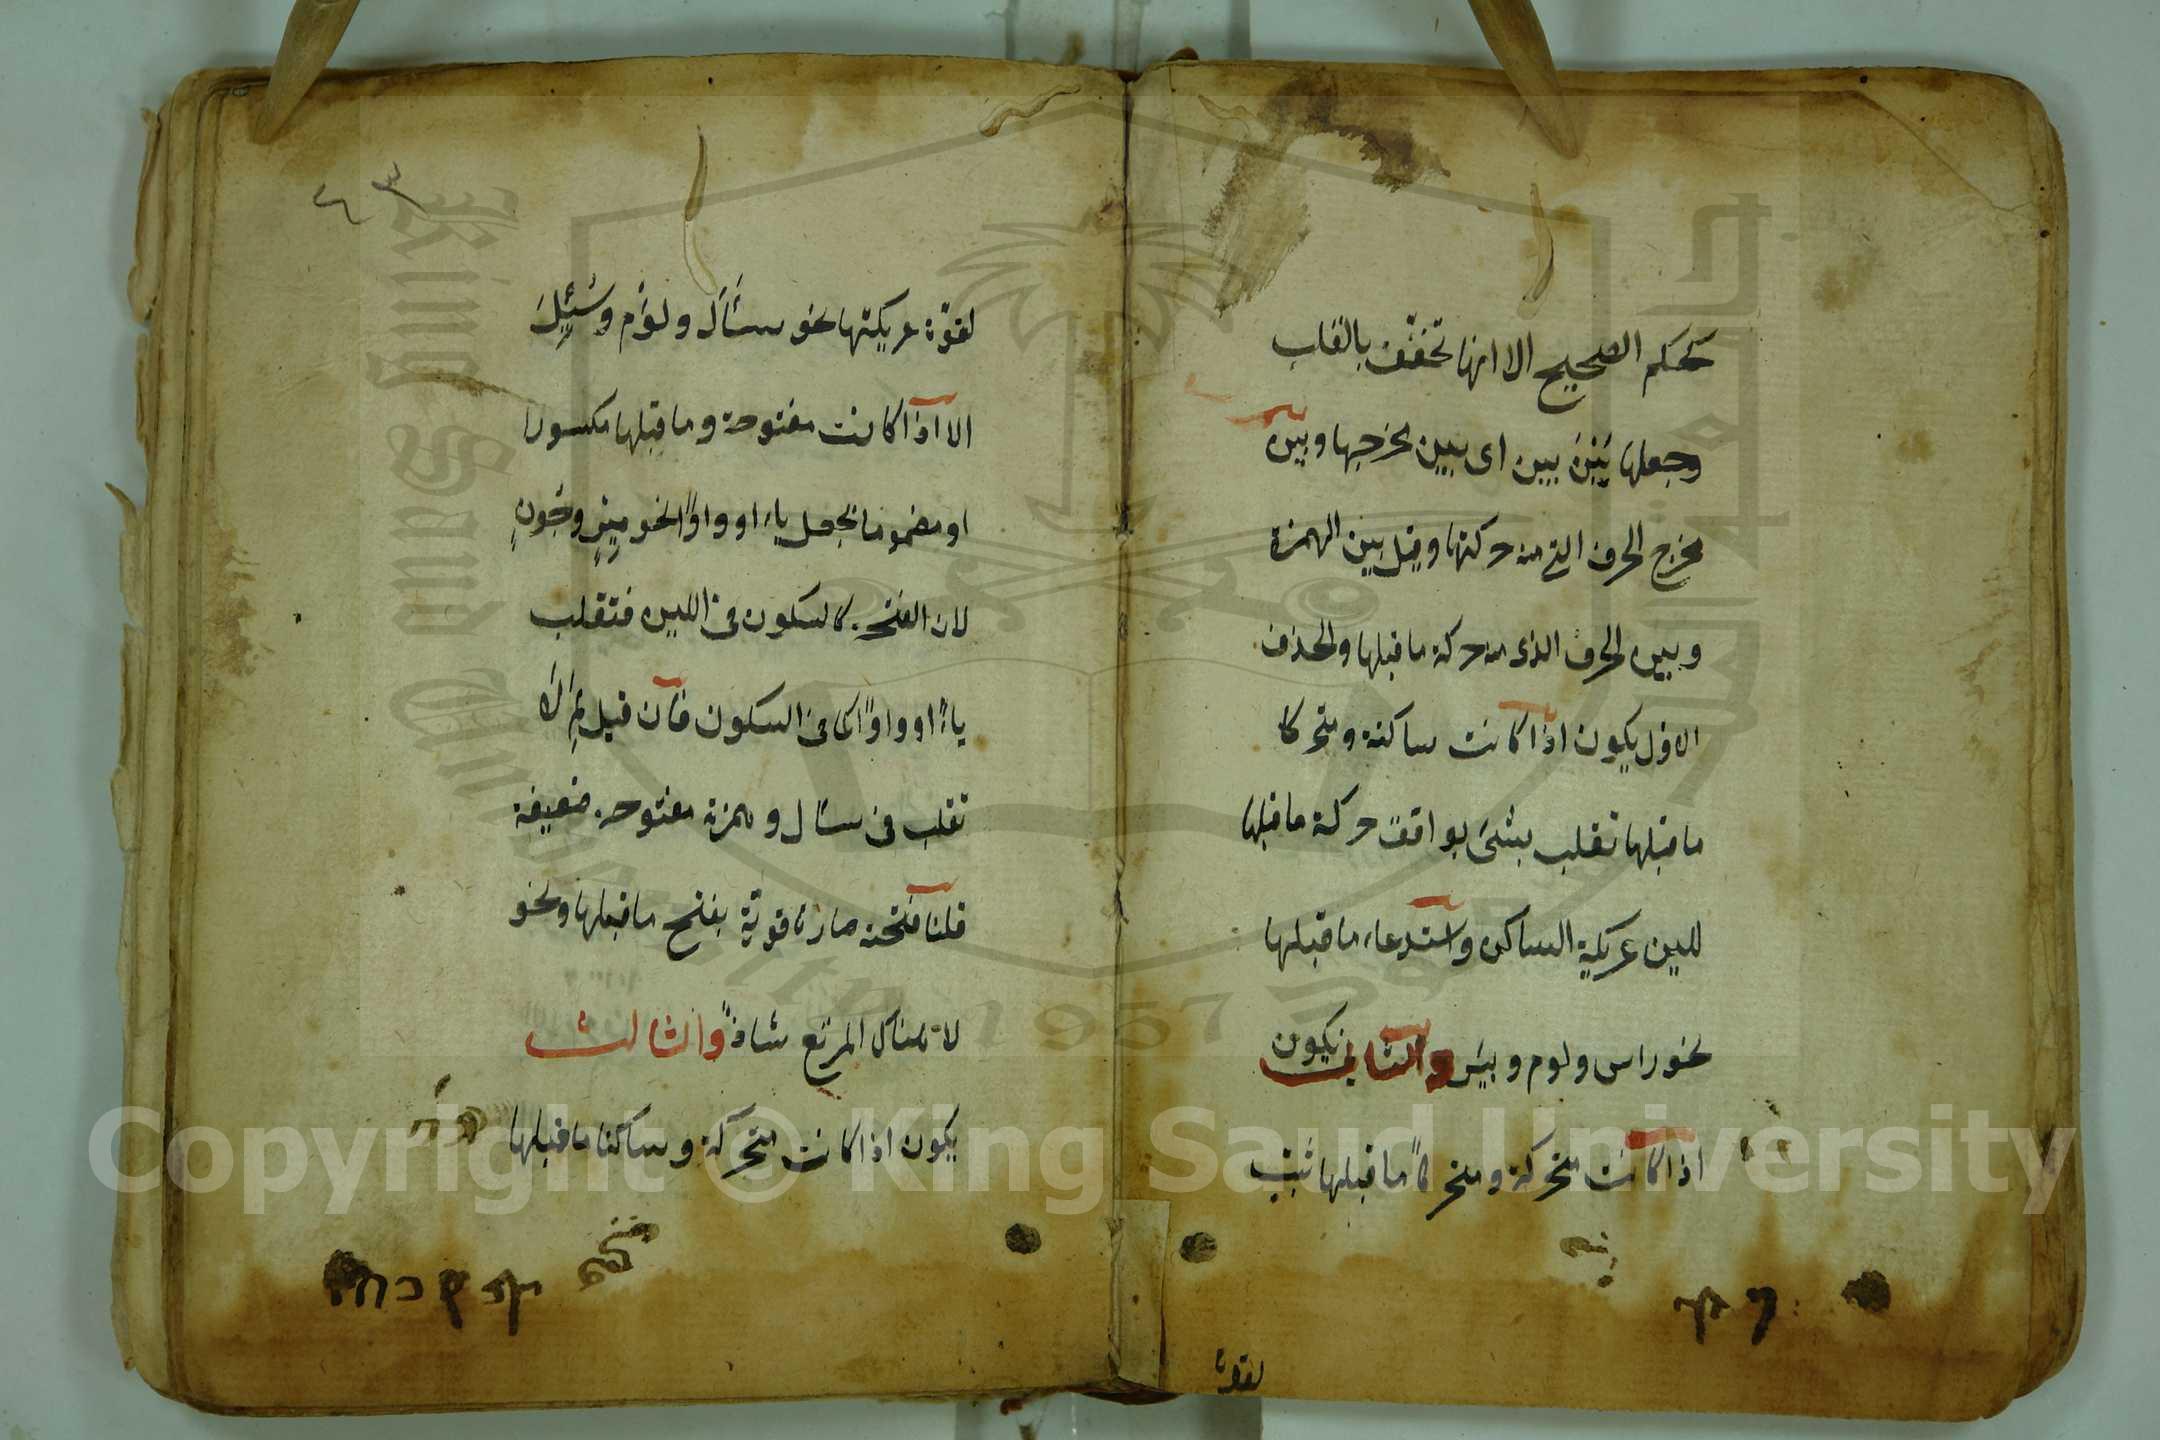 كحكم الصحيح الا انها تخفّف بالقلب
وجعلها بَيْنَ بين اى بين مخرجها وبين
مخرج الحرف التى منه حركتها وقيل بين الهمزة
وبين الحرف الذى منه حركة ما قبلها والحذف
الاول يكون اذا كانت ساكنة ومتحركا
ما قبلها تقلب بشئ يوافق حركة ما قبلها
للين عريكة الساكن واستدعاء ما قبلها
نحو راس ولوم وبير والثانى يكون
اذا كانت متحركة ومتحركاً ما قبلها تثبت
لقوة
٤٣
لقوّة عريكتها نحو سَأَلَ ولؤُم وسُئِلَ
الا اذا كانت مفتوحة وما قبلها مكسورا
او مضموما تجعل ياء او واوًا نحو مِيَرٍ وجُوَنٍ
لان الفتحة كالسكون فى اللين فتقلب
ياءً او واوًا كما فى السكون فان قيل لِمَ لا
تقلب فى سأل وهمزته مفتوحة ضعيفة
قلنا فتحته صارت قويّة بفتح ما قبلها ونحو
لا هناك المرتع شاذ والثالث
يكون اذا كانت متحركة وساكنا ما قبلها
King Saud University
1957
Copyright © King Saud University